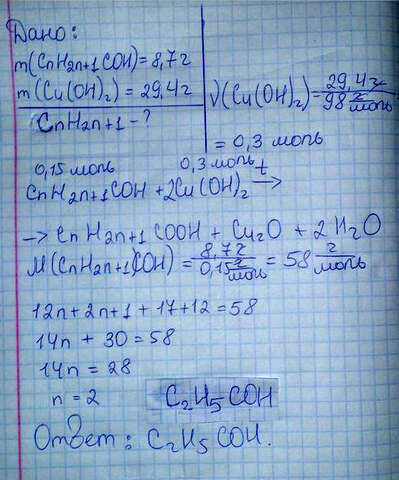 Дано:
m(CnH2n+1COH)=8,7г
m(Cu(OH)2)=29,4г
CnH2n+1-?
ν(Cu(OH)2)=29,4г/98 г/моль
= 0,3 моль
0,15 моль 0,3 моль t
CnH2n+1COH + 2Cu(OH)2 →
→ CnH2n+1COOH + Cu2O + 2H2O
M(CnH2n+1COH) = 8,7г/0,15 г/моль = 58 г/моль
12n+2n+1+17+12=58
14n + 30 = 58
14n = 28
n = 2 C2H5COH
Ответ: C2H5COH.